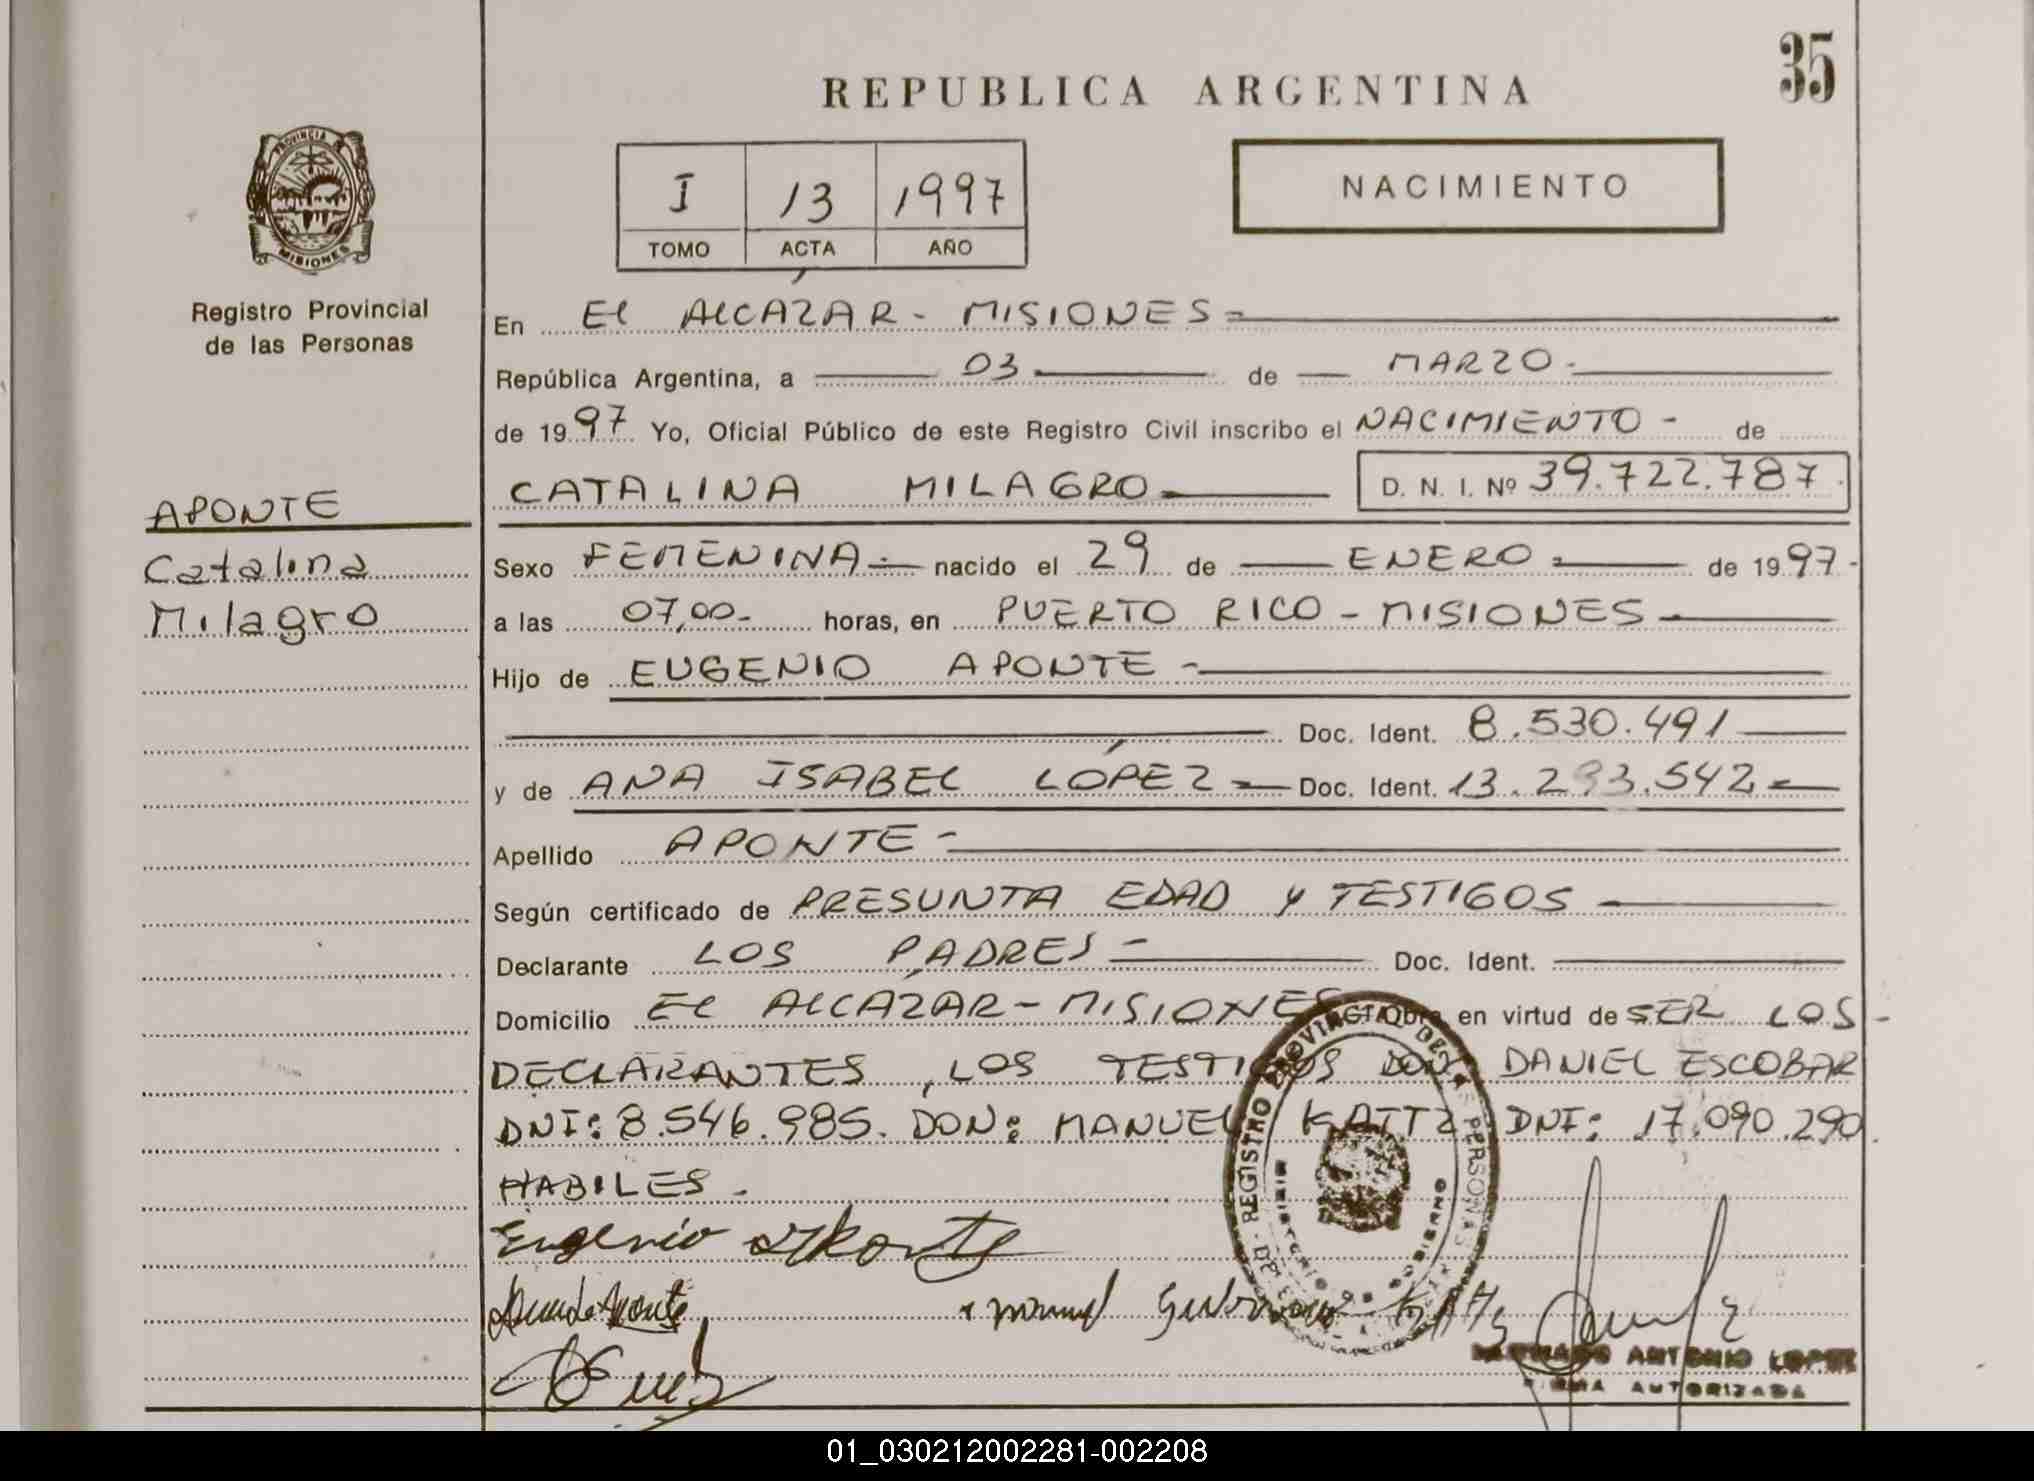 35
REPUBLICA ARGENTINA
PROVINCIA DE
MISIONES
Registro Provincial
de las Personas
I 13 1997
TOMO ACTA AÑO
NACIMIENTO
En El AlCÁZAR - MISIONES =
República Argentina, a 03 de MARZO -
de 1997 Yo, Oficial Público de este Registro Civil inscribo el NACIMIENTO - de
CATALINA MILAGRO D. N. I. Nº 39.722.787
APONTE
Catalina
Milagro
Sexo FEMENINA - nacido el 29 de ENERO - de 1997 -
a las 07,00 - horas, en PUERTO RICO - MISIONES -
Hijo de EUGENIO APONTE -
Doc. Ident. 8.530.491
y de ANA ISABEL LÓPEZ - Doc. Ident. 13.293.542 -
Apellido APONTE -
Según certificado de PRESUNTA EDAD y TESTIGOS
Declarante LOS PADRES - Doc. Ident.
Domicilio El AlCÁZAR - MISIONES Obra en virtud de SER LOS -
DECLARANTES, LOS TESTIGOS DON: DANIEL ESCOBAR
DNI: 8.546.985. DON: MANUEL KATTZ DNI: 17.090.290.
HABILES -
REGISTRO PROVINCIAL DE LAS PERSONAS
MINISTERIO DE GOBIERNO
Eugenio Aponte
Manuel
ANTONIO LOPEZ
FIRMA AUTORIZADA
01_030212002281-002208